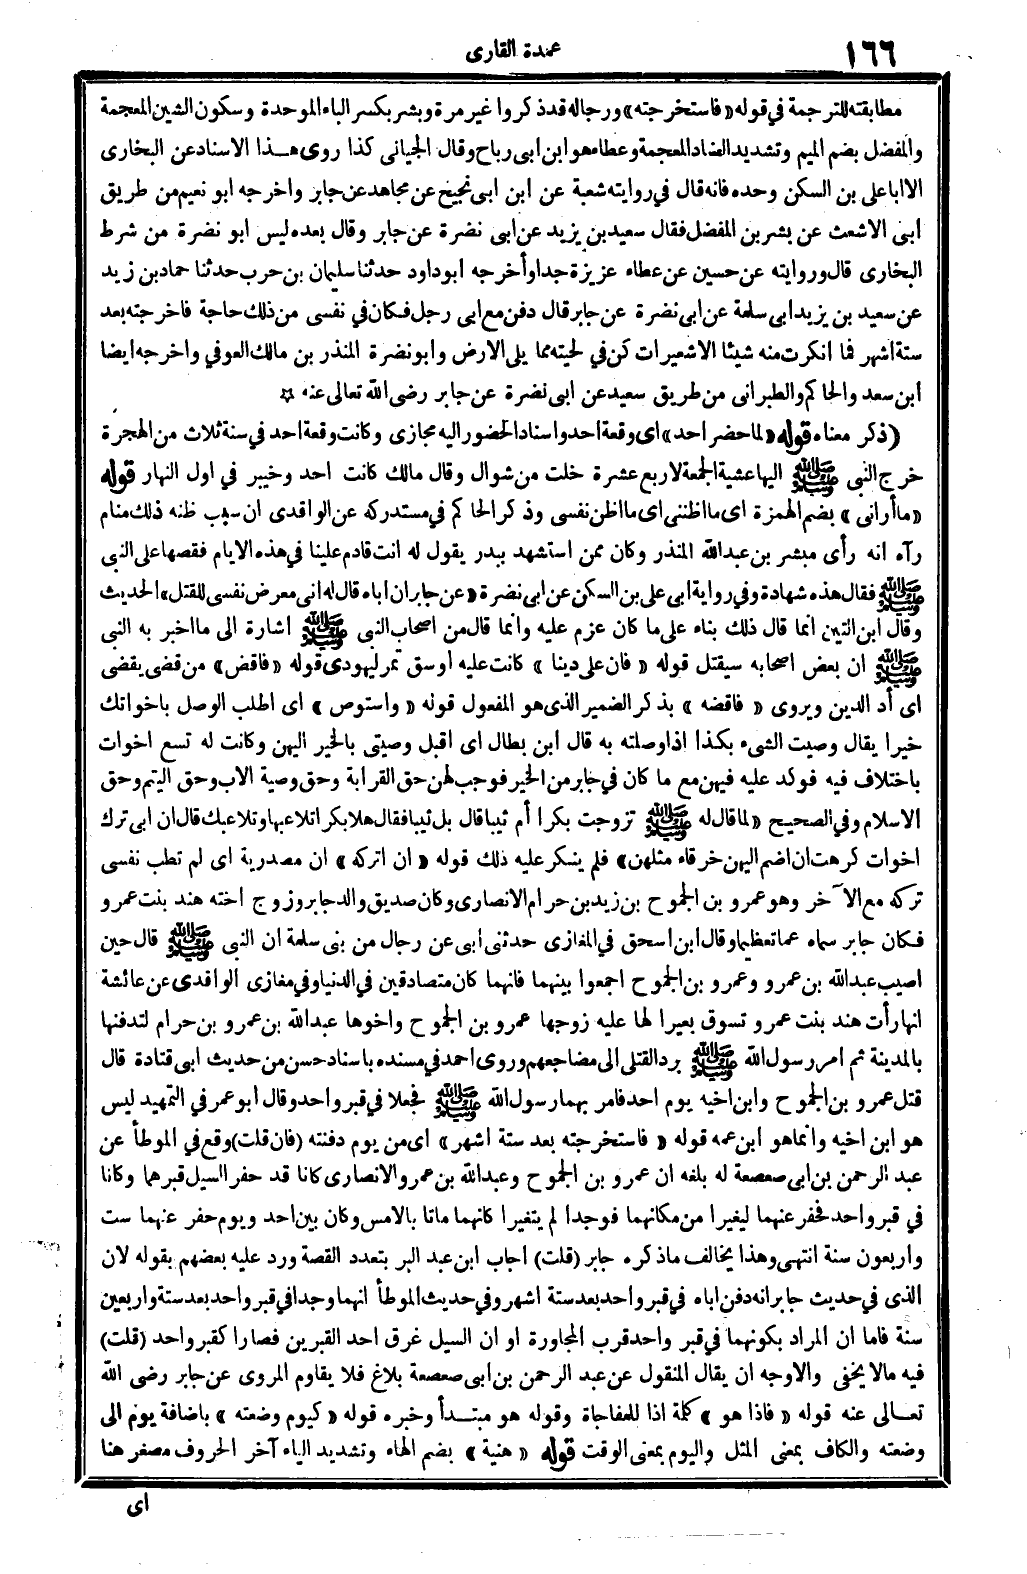 ١٦٦
عمدة القارى
مطابقته للترجمة في قوله «فاستخرجته» ورجاله قد ذكروا غير مرة وبشر بكسر الباء الموحدة وسكون الشين المعجمة
والمفضل بضم الميم وتشديد الضاد المعجمة وعطاء هو ابن ابى رباح وقال الجيانى كذا روى هذا الاسناد عن البخارى
الا ابا على بن السكن وحده فانه قال في روايته شعبة عن ابن ابى نجيح عن مجاهد عن جابر واخرجه ابو نعيم من طريق
ابى الاشعث عن بشر بن المفضل فقال سعيد بن يزيد عن ابى نضرة عن جابر وقال بعده ليس ابو نضرة من شرط
البخارى قال وروايته عن حسين عن عطاء عزيزة جدا وأخرجه ابو داود حدثنا سليمان بن حرب حدثنا حماد بن زيد
عن سعيد بن يزيد ابى سلمة عن ابى نضرة عن جابر قال دفن مع ابى رجل فكان في نفسى من ذلك حاجة فاخرجته بعد
ستة اشهر فما انكرت منه شيئا الا شعيرات كن في لحيته مما يلى الارض وابو نضرة المنذر بن مالك العوفي واخرجه ايضا
ابن سعد والحاكم والطبرانى من طريق سعيد عن ابى نضرة عن جابر رضى الله تعالى عنه ☆
(ذكر معناه) قوله «لما حضر احد» اى وقعة احد واسناد الحضور اليه مجازى وكانت وقعة احد في سنة ثلاث من الهجرة
خرج النبى ﷺ اليها عشية الجمعة لاربع عشرة خلت من شوال وقال مالك كانت احد وخيبر في اول النهار قوله
«ما أرانى» بضم الهمزة اى ما اظننى اى ما اظن نفسى وذكر الحاكم في مستدركه عن الواقدى ان سبب ظنه ذلك منام
رآه انه رأى مبشر بن عبد الله المنذر وكان ممن استشهد ببدر يقول له انت قادم علينا في هذه الايام فقصها على النبى
ﷺ فقال هذه شهادة وفي رواية ابى على بن السكن عن ابى نضرة «عن جابر ان اباه قال له انى معرض نفسى للقتل» الحديث
وقال ابن التين انما قال ذلك بناء على ما كان عزم عليه وانما قال من اصحاب النبى ﷺ اشارة الى ما اخبر به النبى
ﷺ ان بعض اصحابه سيقتل قوله «فان على دينا» كانت عليه اوسق تمر ليهودى قوله «فاقض» من قضى يقضى
اى أد الدين ويروى «فاقضه» بذكر الضمير الذى هو المفعول قوله «واستوص» اى اطلب الوصل باخواتك
خيرا يقال وصيت الشىء بكذا اذا وصلته به قال ابن بطال اى اقبل وصيتى بالخير اليهن وكانت له تسع اخوات
باختلاف فيه فوكد عليه فيهن مع ما كان في جابر من الخير فوجب لهن حق القرابة وحق وصية الاب وحق اليتم وحق
الاسلام وفي الصحيح «لما قال له ﷺ تزوجت بكرا أم ثيبا قال بل ثيبا فقال هلا بكرا تلاعبها وتلاعبك قال ان ابى ترك
اخوات كرهت ان اضم اليهن خرقاء مثلهن» فلم ينكر عليه ذلك قوله «ان اتركه» ان مصدرية اى لم تطب نفسى
تركه مع الآخر وهو عمرو بن الجموح بن زيد بن حرام الانصارى وكان صديق والد جابر وزوج اخته هند بنت عمرو
فكان جابر سماه عما تعظيما وقال ابن اسحق في المغازى حدثنى أبى عن رجال من بنى سلمة ان النبى ﷺ قال حين
اصيب عبد الله بن عمرو وعمرو بن الجموح اجمعوا بينهما فانهما كان متصادقين في الدنيا وفي مغازى الواقدى عن عائشة
انها رأت هند بنت عمرو تسوق بعيرا لها عليه زوجها عمرو بن الجموح واخوها عبد الله بن عمرو بن حرام لتدفنها
بالمدينة ثم امر رسول الله ﷺ برد القتلى الى مضاجعهم وروى احمد في مسنده باسناد حسن من حديث ابى قتادة قال
قتل عمرو بن الجموح وابن اخيه يوم احد فامر بهما رسول الله ﷺ فجعلا في قبر واحد وقال أبو عمر في التمهيد ليس
هو ابن اخيه وانما هو ابن عمه قوله «فاستخرجته بعد ستة اشهر» اى من يوم دفنته (فان قلت) وقع في الموطأ عن
عبد الرحمن بن ابى صعصعة له بلغه ان عمرو بن الجموح وعبد الله بن عمرو الانصارى كانا قد حفر السيل قبرهما وكانا
في قبر واحد فحفر عنهما ليغيرا من مكانهما فوجدا لم يتغيرا كانهما ماتا بالامس وكان بين احد ويوم حفر عنهما ست
واربعون سنة انتهى وهذا يخالف ما ذكره جابر (قلت) اجاب ابن عبد البر بتعدد القصة ورد عليه بعضهم بقوله لان
الذى في حديث جابر انه دفن اباه في قبر واحد بعد ستة اشهر وفي حديث الموطأ انهما وجدا في قبر واحد بعد ستة واربعين
سنة فاما ان المراد بكونهما في قبر واحد قرب المجاورة او ان السيل غرق احد القبرين فصارا كقبر واحد (قلت)
فيه مالا يخفى والاوجه ان يقال المنقول عن عبد الرحمن بن ابى صعصعة بلاغ فلا يقاوم المروى عن جابر رضى الله
تعالى عنه قوله «فاذا هو» كلمة اذا للمفاجاة وقوله هو مبتدأ وخبره قوله «كيوم وضعته» باضافة يوم الى
وضعته والكاف بمعنى المثل واليوم بمعنى الوقت قوله «هنية» بضم الهاء وتشديد الياء آخر الحروف مصغر هنا
اى